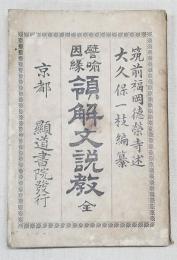 筑前福岡德榮寺述
大久保一枝編纂
譬喩
因緣
領解文說教 全
京都 顯道書院發行